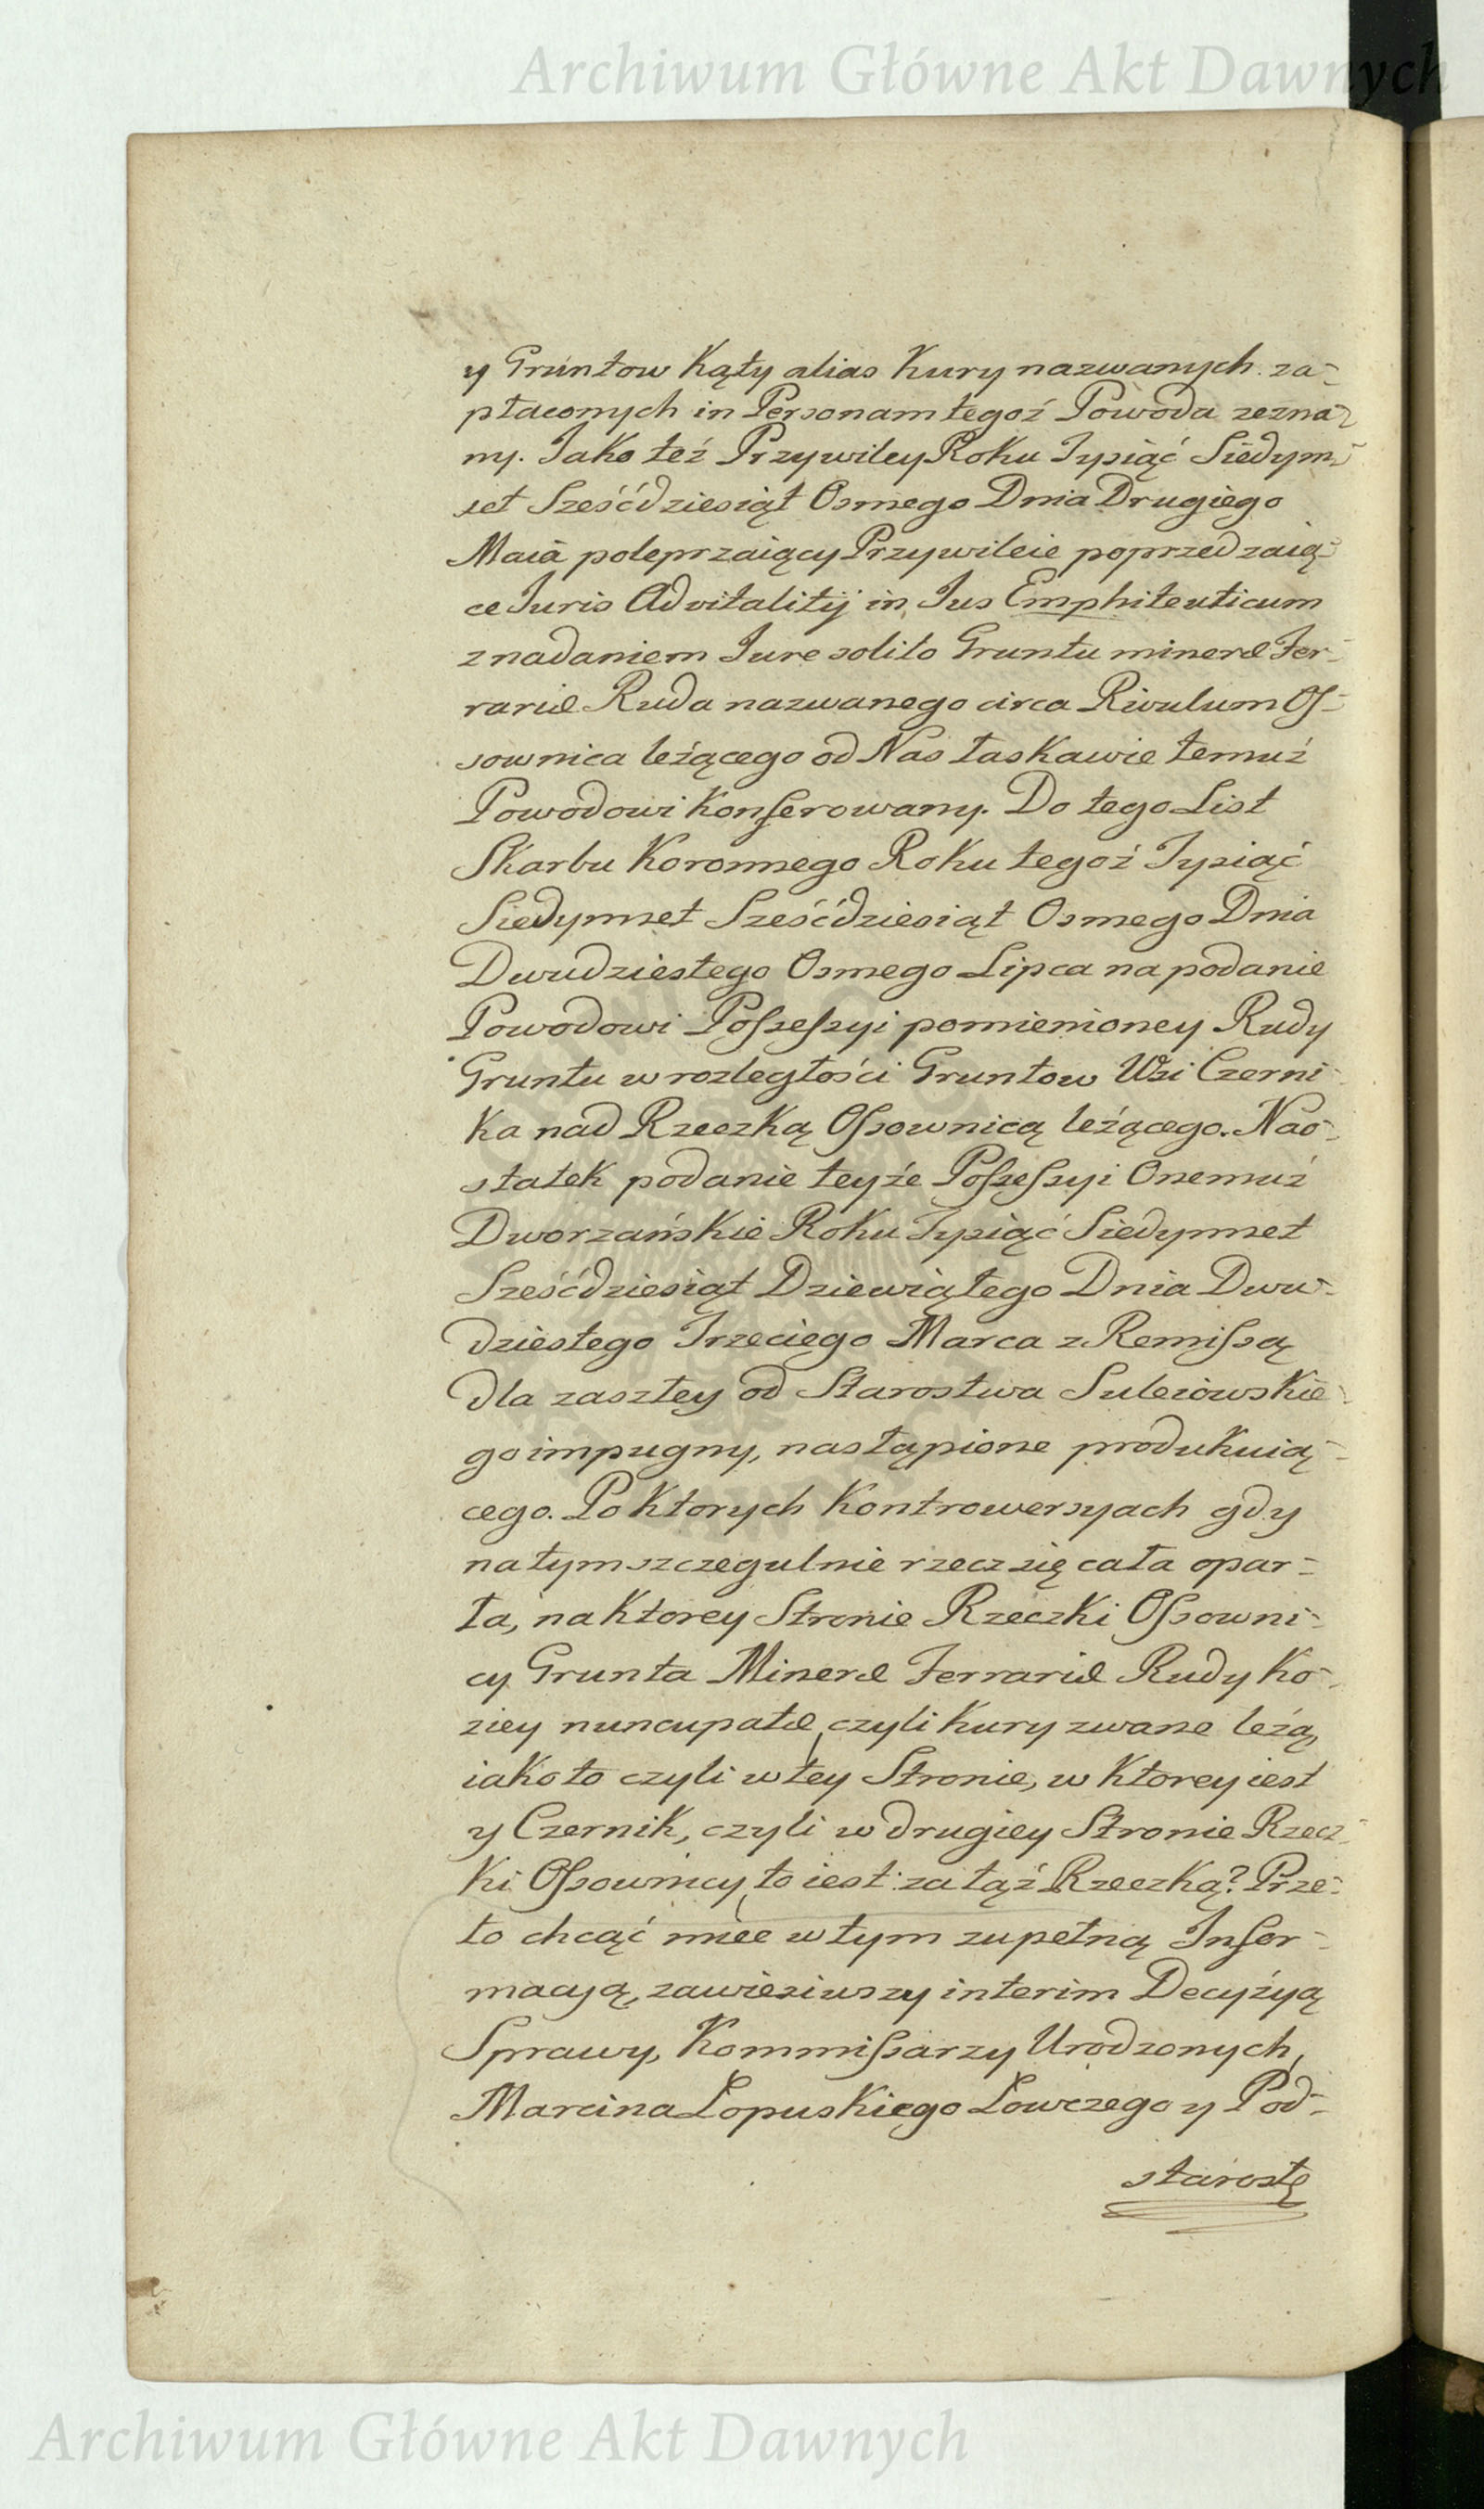 Archiwum Główne Akt Dawnych
y Gruntow Kąty alias Kury nazwanych za-
płaconych in Personam tegoż Powoda zezna-
ny. Jako też Przywiley Roku Tysiąć Siedym-
set Sześćdziesiąt Osmego Dnia Drugiego
Maia poleprzaiący Przywileie poprzedzaią-
ce Juris Advitalitij in Jus Emphiteuticum
z nadaniem Jure solito Gruntu mineræ Fer-
rariæ Ruda nazwanego circa Rivulum Os-
sownica leżącego od Nas łaskawie temuż
Powodowi konferowany. Do tego List
Skarbu Koronnego Roku tegoż Tysiąć
Siedymset Sześćdziesiąt Osmego Dnia
Dwudziestego Osmego Lipca na podanie
Powodowi Possessyi pomienioney Rudy
Gruntu w rozległości Gruntow Wsi Czerni-
ka nad Rzeczką Ossownicą leżącego. Nao-
statek podanie teyże Possessyi Onemuż
Dworzańskie Roku Tysiąć Siedymset
Sześćdziesiąt Dziewiątego Dnia Dwu-
dziestego Trzeciego Marca z Remissą
dla zaszłey od Starostwa Suleiowskie-
go impugny, nastąpione produkuią-
cego. Po ktorych kontrowersyach gdy
na tym szczegulnie rzecz się cała opar-
ła, na ktorey Stronie Rzeczki Ossowni-
cy Grunta Mineræ Ferrariæ Rudy Ko-
ziey nuncupatæ, czyli Kury zwane leżą
iako to czyli w tey Stronie, w ktorey iest
y Czernik, czyli w drugiey Stronie Rzecz-
ki Ossownicy, to iest za tąż Rzeczką? Prze-
to chcąć miee w tym zupełną Infor-
macyą, zawiesiwszy interim Decyżyą
Sprawy, Kommissarzy Urodzonych,
Marcina Łopuskiego Łowczego y Pod-
starostę
Archiwum Główne Akt Dawnych